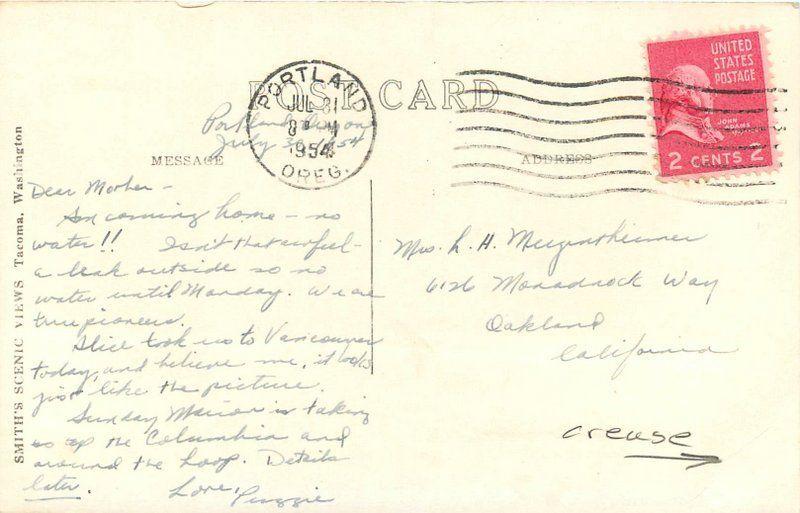 POST CARD
PORTLAND
JUL 31
8 PM
1954
OREG.
UNITED
STATES
POSTAGE
JOHN
ADAMS
2 CENTS 2
Portland Oregon
July 1954
MESSAGE
ADDRESS
SMITH'S SCENIC VIEWS Tacoma, Washington
Dear Mother -
Am coming home - no
water!! Isn't that awful -
a leak outside so no
water until Monday. We are
true pioneers.
Alice took us to Vancouver
today, and believe me, it looks
just like the picture.
Sunday is taking
us up the Columbia and
around the loop. Details
later. Love,
Mrs. L. H. Mergentheimer
6126 Monadnock Way
Oakland
California
crease